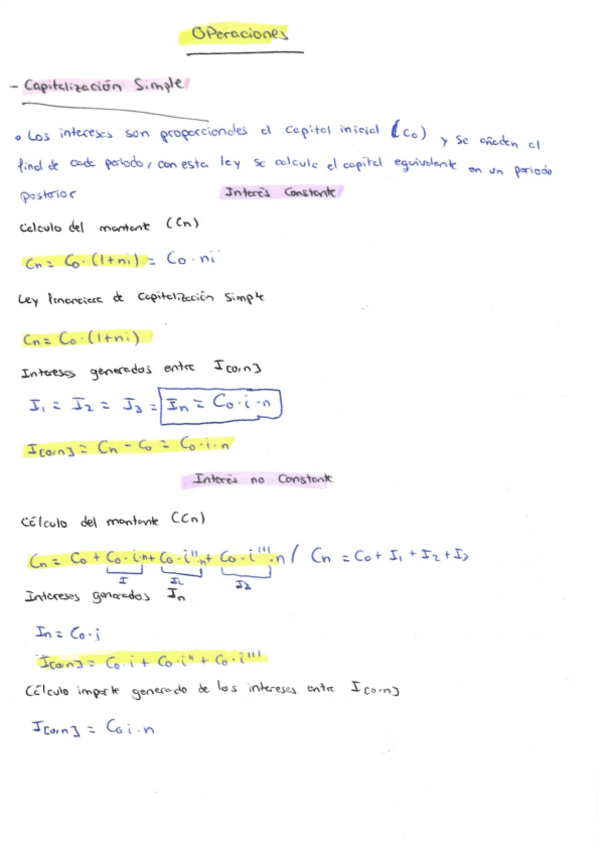 Operaciones
- Capitalización Simple
• Los intereses son proporcionales al capital inicial (C₀) y se añaden al
final de cada periodo, con esta ley se calcula el capital equivalente en un periodo
posterior
Interés Constante
Calculo del montante (Cn)
Cn = C₀ · (1+ni) = C₀ · ni
Ley financiera de Capitalización Simple
Cn = C₀ · (1+ni)
Intereses generados entre I[0,n]
I₁ = I₂ = I₃ = In = C₀ · i · n
I[0,n] = Cn - C₀ = C₀ · i · n
Interés no Constante
Cálculo del montante (Cn)
Cn = C₀ + C₀ · i · n + C₀ · i'' · n + C₀ · i''' · n / Cn = C₀ + I₁ + I₂ + I₃
I I₂ I₃
Intereses generados In
In = C₀ · i
I[0,n] = C₀ · i + C₀ · i'' + C₀ · i'''
Cálculo importe generado de los intereses entre I[0,n]
I[0,n] = C₀ i · n